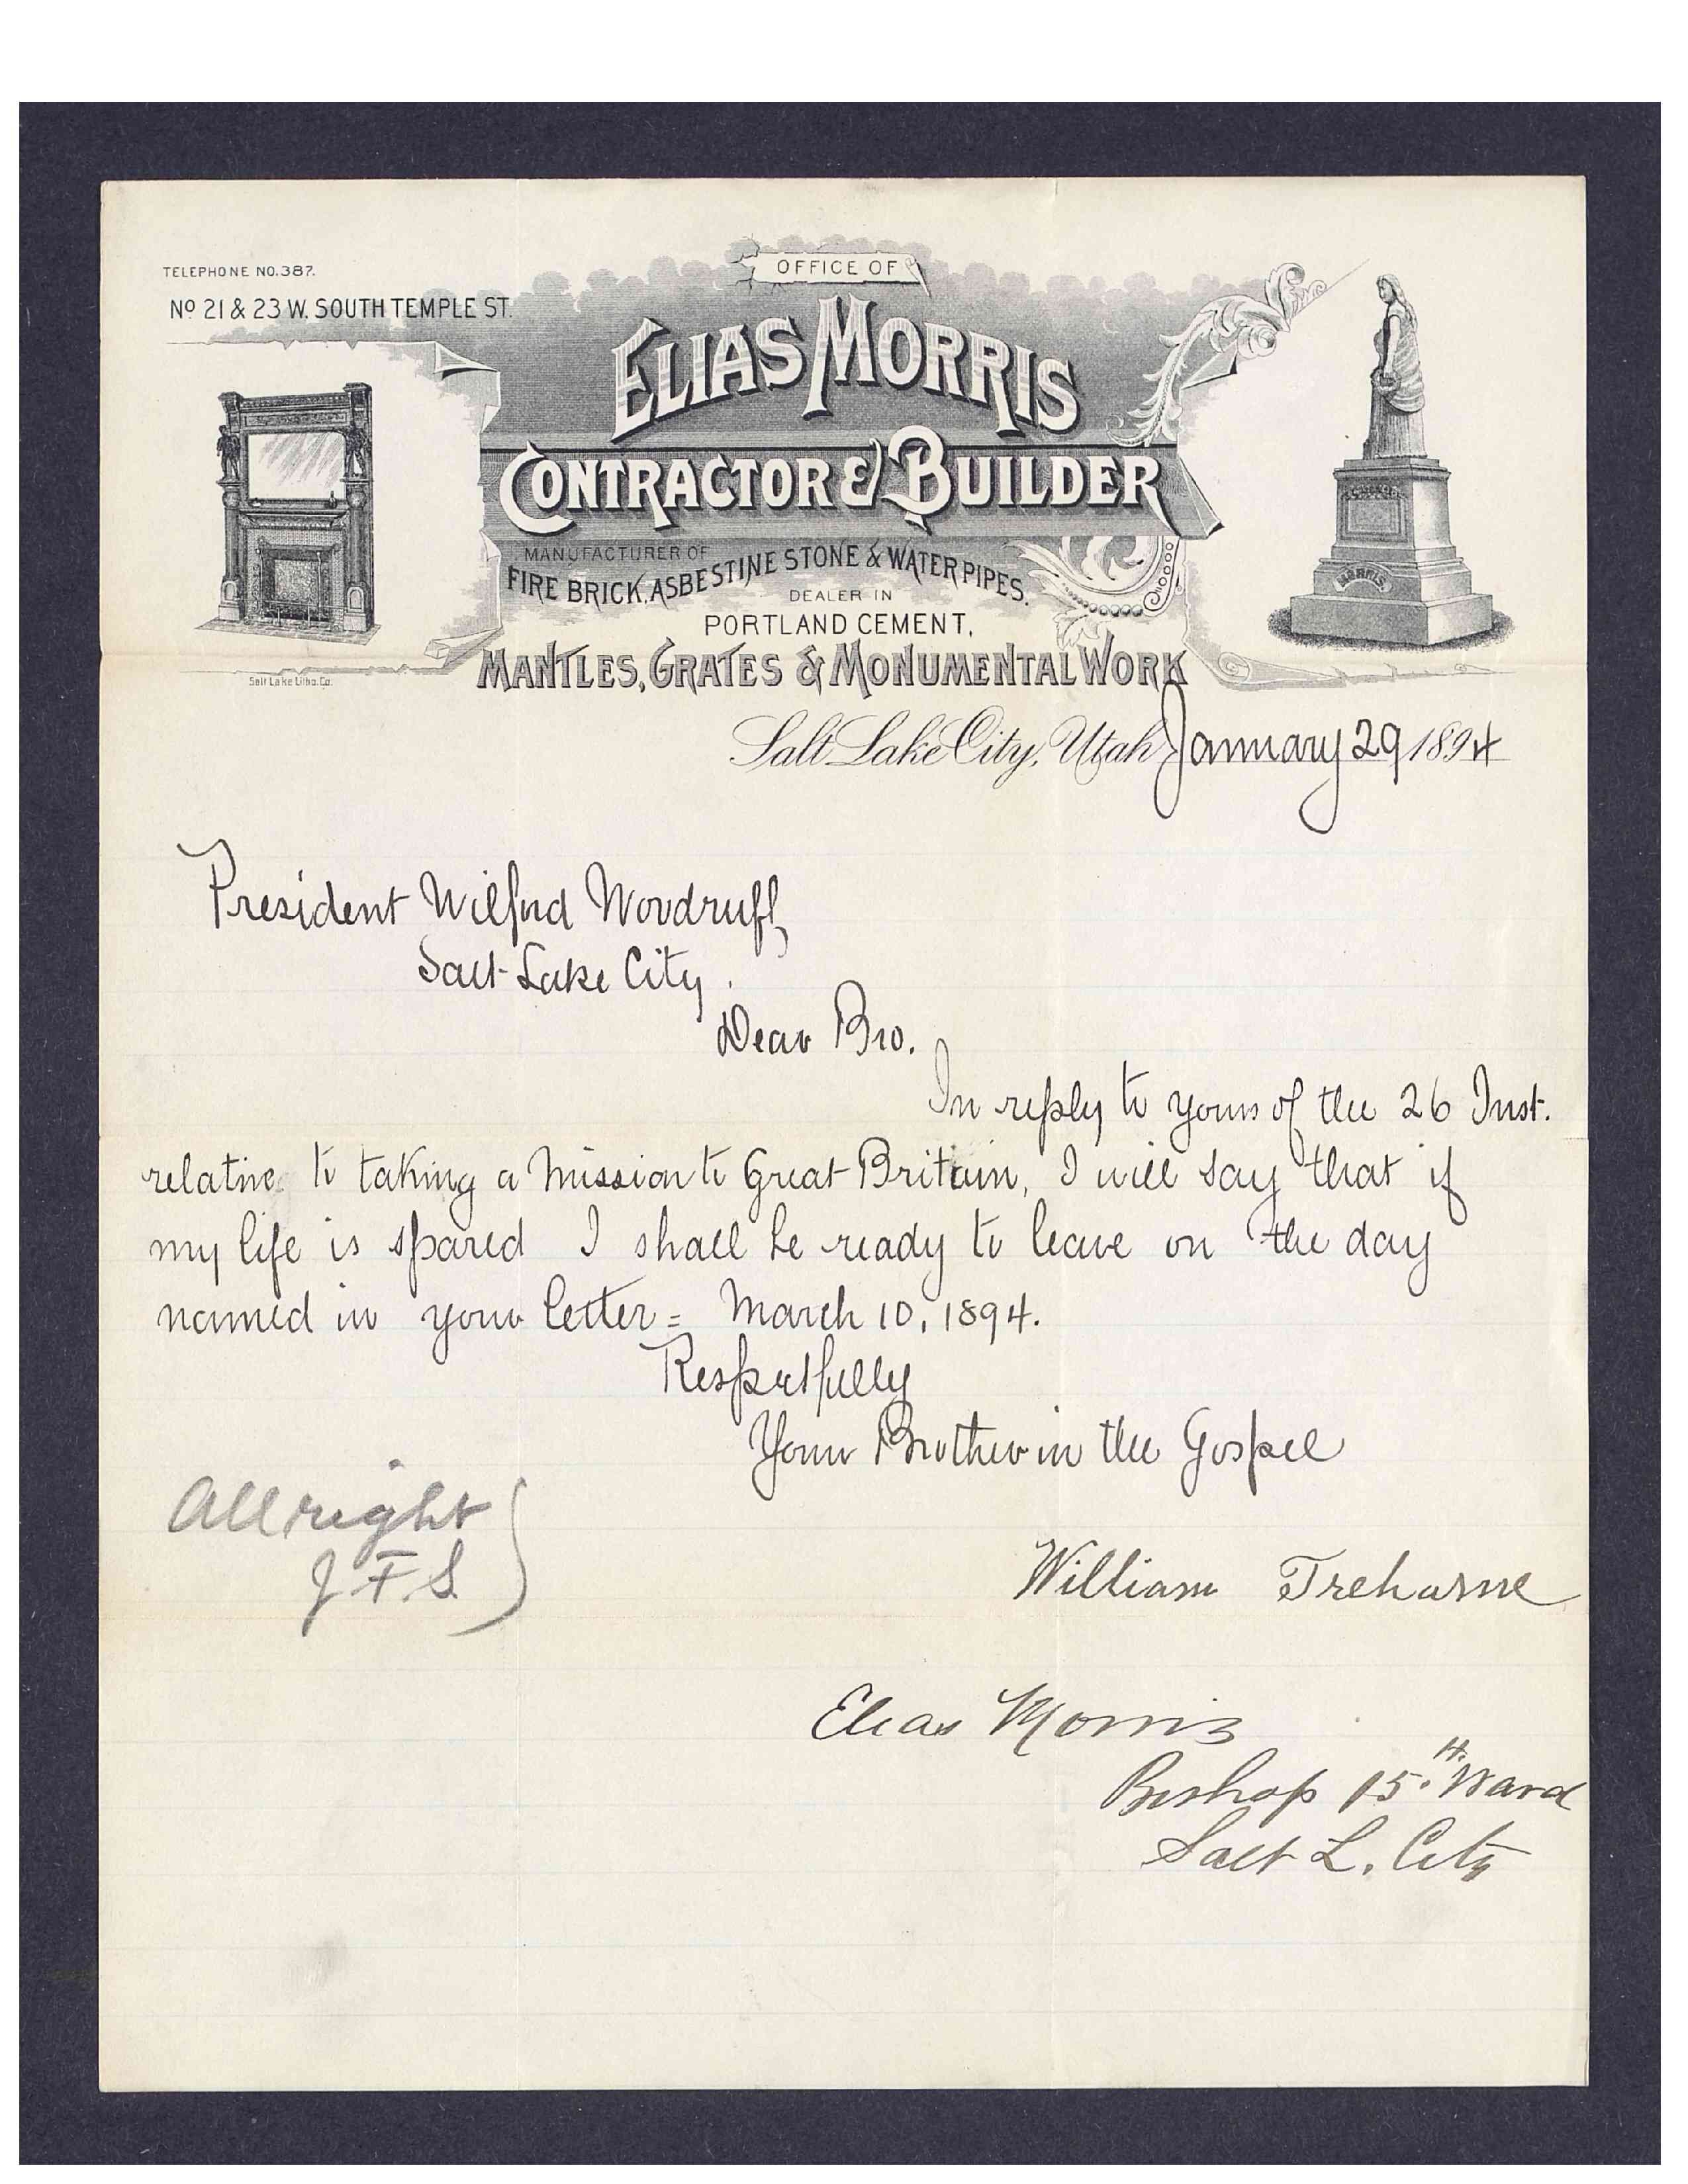 TELEPHONE NO. 387.
No 21 & 23 W. SOUTH TEMPLE ST.
OFFICE OF
ELIAS MORRIS
CONTRACTOR & BUILDER
MANUFACTURER OF
FIRE BRICK, ASBESTINE STONE & WATER PIPES.
DEALER IN
PORTLAND CEMENT,
MANTLES, GRATES & MONUMENTAL WORK
MORRIS
Salt Lake Litho. Co.
Salt Lake City, Utah January 29 1894
President Wilford Woodruff,
Salt Lake City.
Dear Bro.
In reply to yours of the 26 Inst.
relative to taking a mission to Great Britain, I will say that if
my life is spared I shall be ready to leave on the day
named in your letter = March 10, 1894.
Respectfully
Your Brother in the Gospel
William Treharne
All right
J. F. S.
Elias Morris
Bishop 15th Ward
Salt L. City